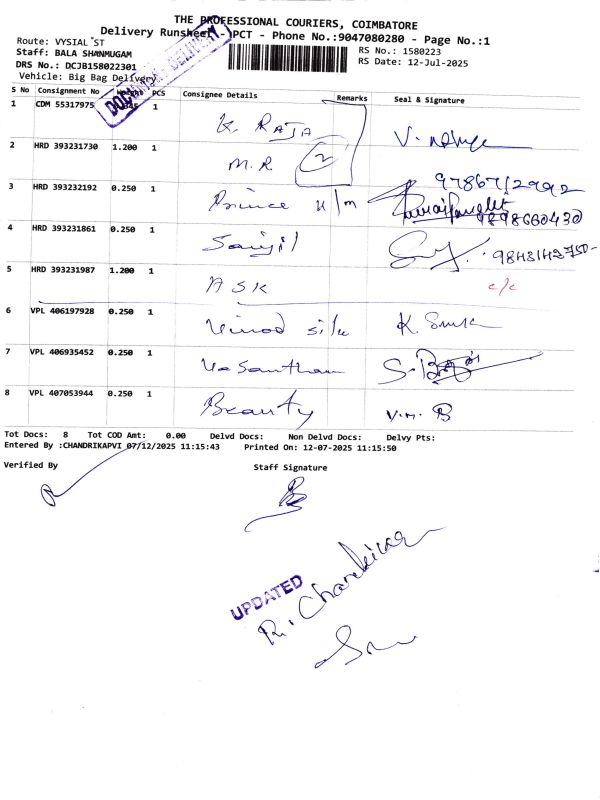 THE PROFESSIONAL COURIERS, COIMBATORE
Delivery Runsheet - PCT - Phone No.:9047080280 - Page No.:1
Route: VYSIAL ST
Staff: BALA SHANMUGAM
DRS No.: DCJB158022301
Vehicle: Big Bag Delivery
RS No.: 1580223
RS Date: 12-Jul-2025
DOCUMENT DELIVERY
S No Consignment No Weight PCS Consignee Details Remarks Seal & Signature
1 CDM 55317975 1 K. RAJA
2 HRD 393231730 1.200 1 M.R 2
3 HRD 393232192 0.250 1 Prince 9898660430
4 HRD 393231861 0.250 1
5 HRD 393231987 1.200 1 ASK c/c
6 VPL 406197928 0.250 1 Vinod silk K.
7 VPL 406935452 0.250 1 Vasantham S.
8 VPL 407053944 0.250 1 Beauty V.M. B
Tot Docs: 8 Tot COD Amt: 0.00 Delvd Docs: Non Delvd Docs: Delvy Pts:
Entered By :CHANDRIKAPVI 07/12/2025 11:15:43 Printed On: 12-07-2025 11:15:50
Verified By Staff Signature
UPDATED
R. Chandrika